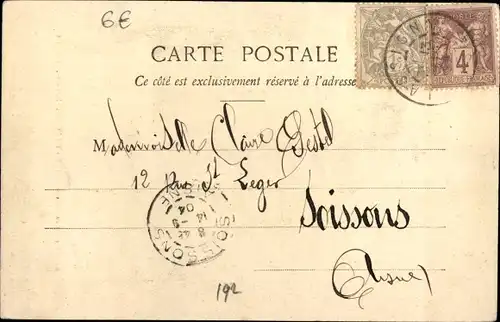 6€
CARTE POSTALE
Ce côté est exclusivement réservé à l'adresse
4
Mademoiselle Claire
12 Rue St Leger
Soissons
(Aisne)
SOISSONS
AISNE
8 45
14 - 9
04
192